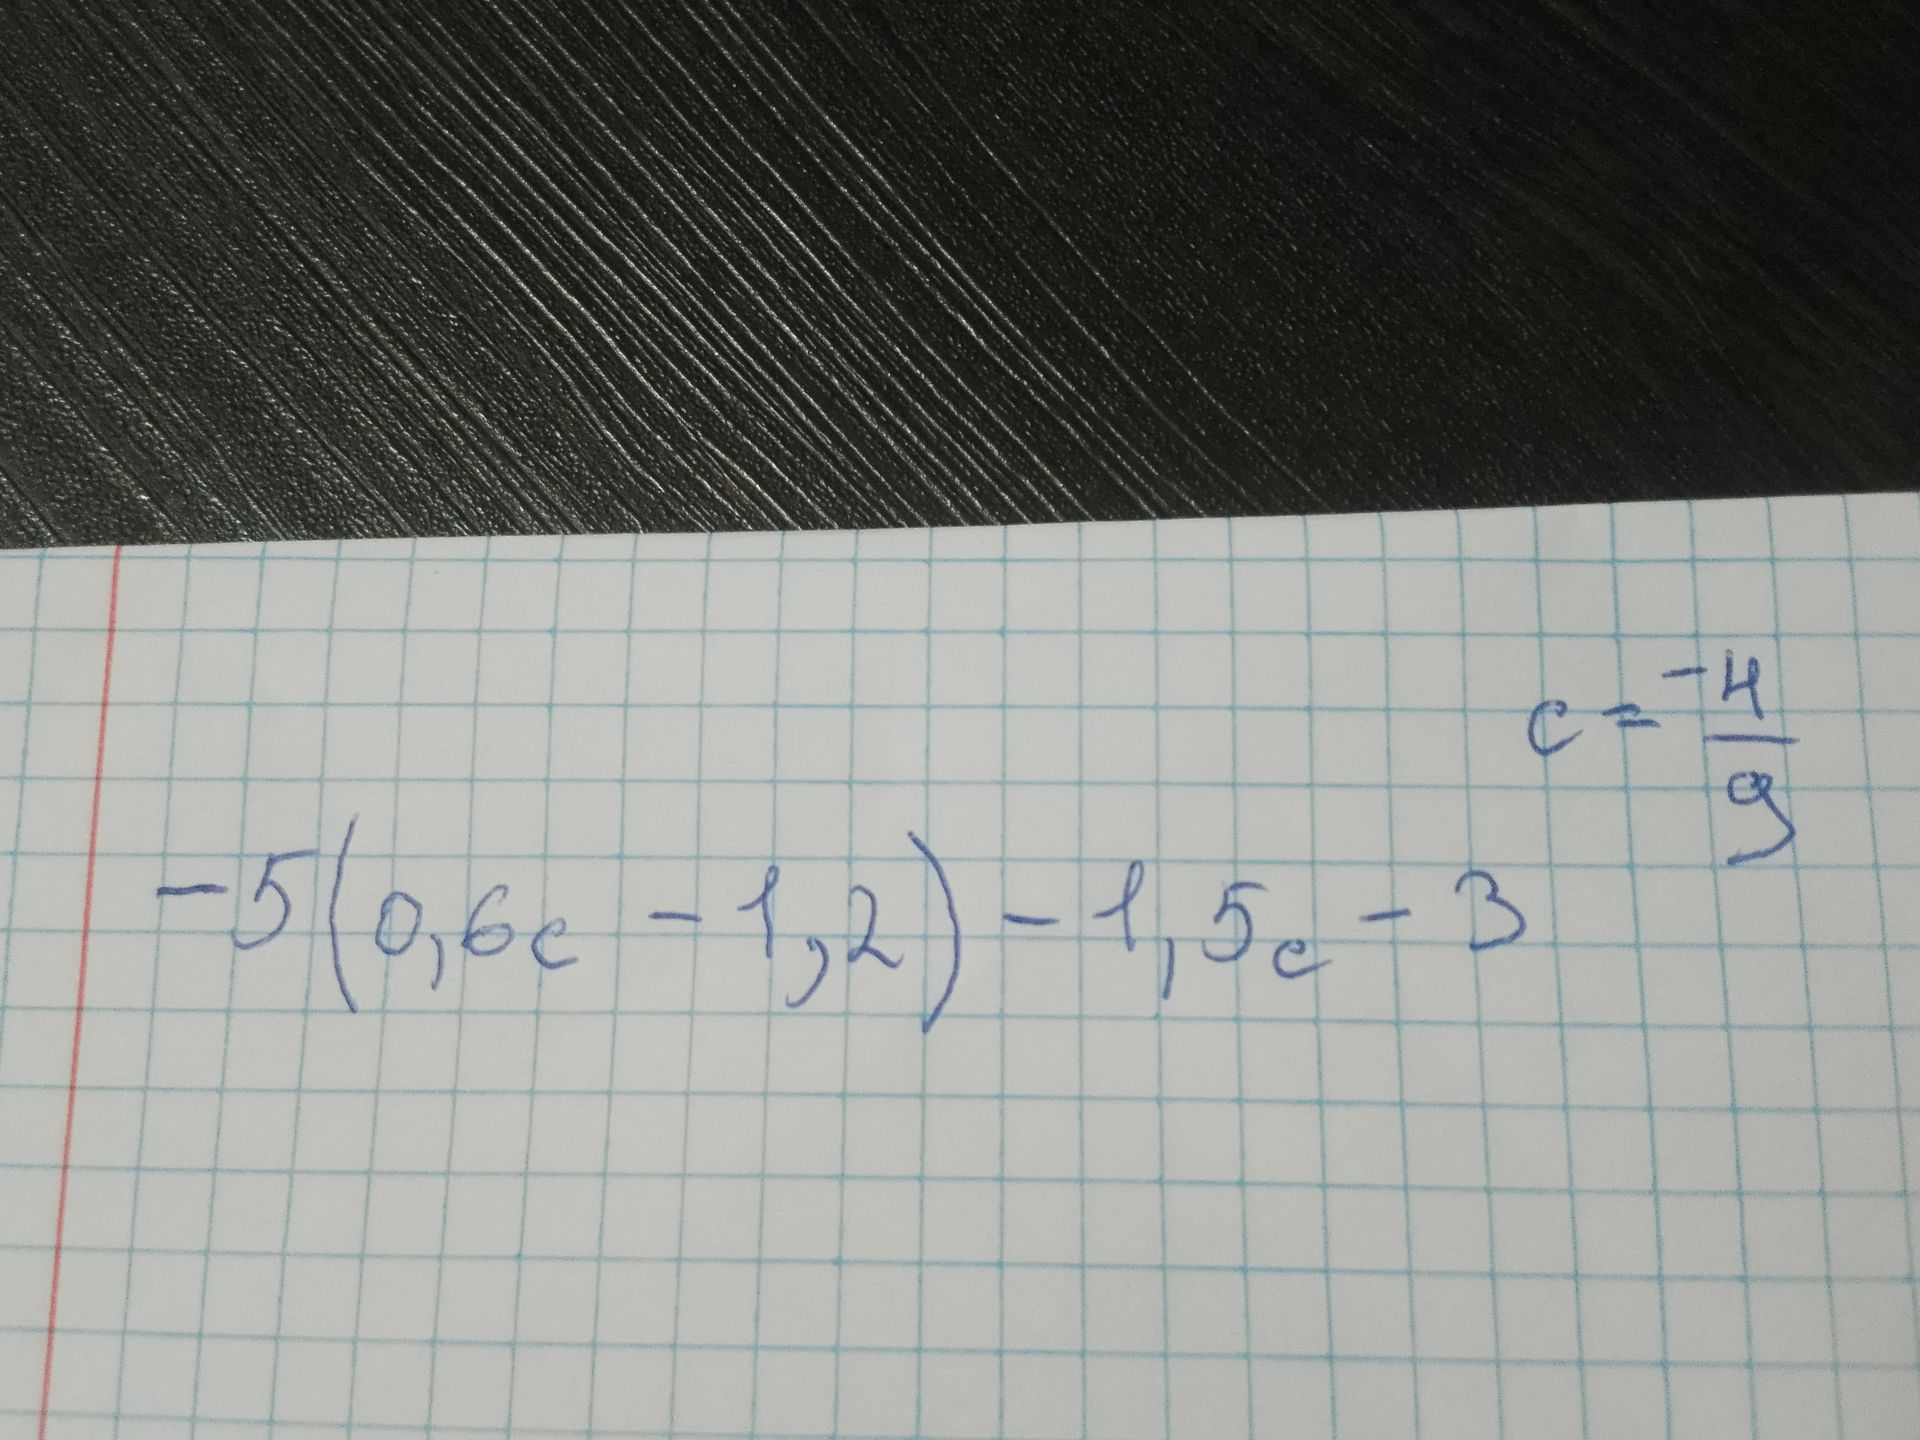 c = -4/9
-5(0,6c - 1,2) - 1,5c - 3